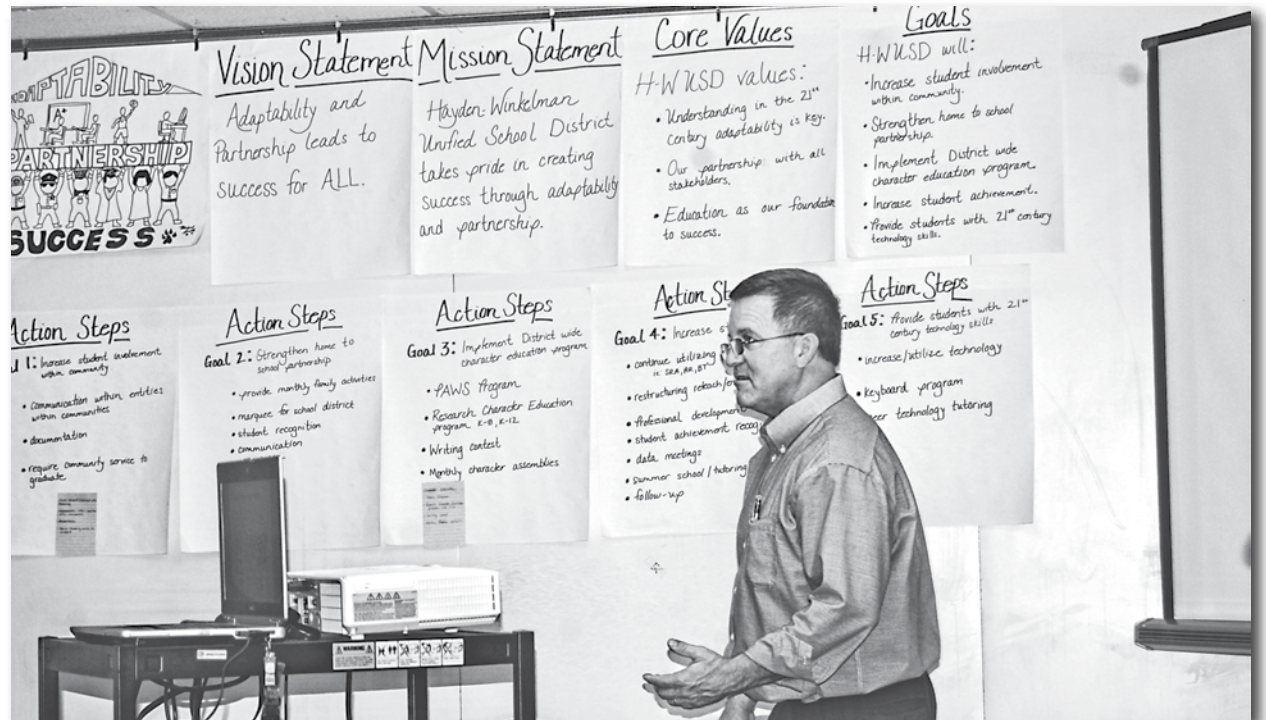 APTABILITY
A+
PARTNERSHIP
SUCCESS
Vision Statement
Adaptability and
Partnership leads to
success for ALL.
Mission Statement
Hayden-Winkelman
Unified School District
takes pride in creating
success through adaptability
and partnership.
Core Values
H-WUSD values:
• Understanding in the 21st
century adaptability is key.
• Our partnership with all
stakeholders.
• Education as our foundation
to success.
Goals
H-WUSD will:
• Increase student involvement
within community.
• Strengthen home to school
partnership.
• Implement District wide
character education program.
• Increase student achievement.
• Provide students with 21st century
technology skills.
Action Steps
l 1: Increase student involvement
within community
• Communication within entities
within communities
• documentation
• require community service to
graduate
Action Steps
Goal 2: Strengthen home to
school partnership
• provide monthly family activities
• marquee for school district
• student recognition
• communication
Action Steps
Goal 3: Implement District wide
character education program
• PAWS Program
• Research Character Education
program K-8, K-12
• Writing contest
• Monthly character assemblies
Action St
Goal 4: Increase st
• continue utilizing
• restructuring
• Professional development
• student achievement recog
• data meetings
• summer school/tutoring
• follow-up
Action Steps
Goal 5: Provide students with 21st
century technology skills
• increase/utilize technology
• keyboard program
eer technology tutoring
WARNING